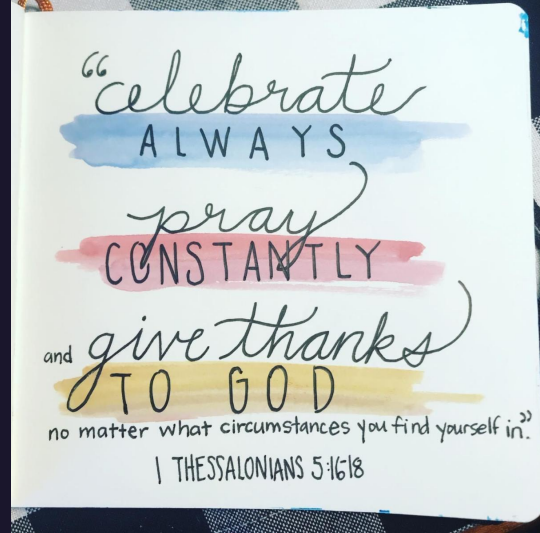 "celebrate
ALWAYS
pray
CONSTANTLY
and give thanks
TO GOD
no matter what circumstances you find yourself in."
1 THESSALONIANS 5:16-18